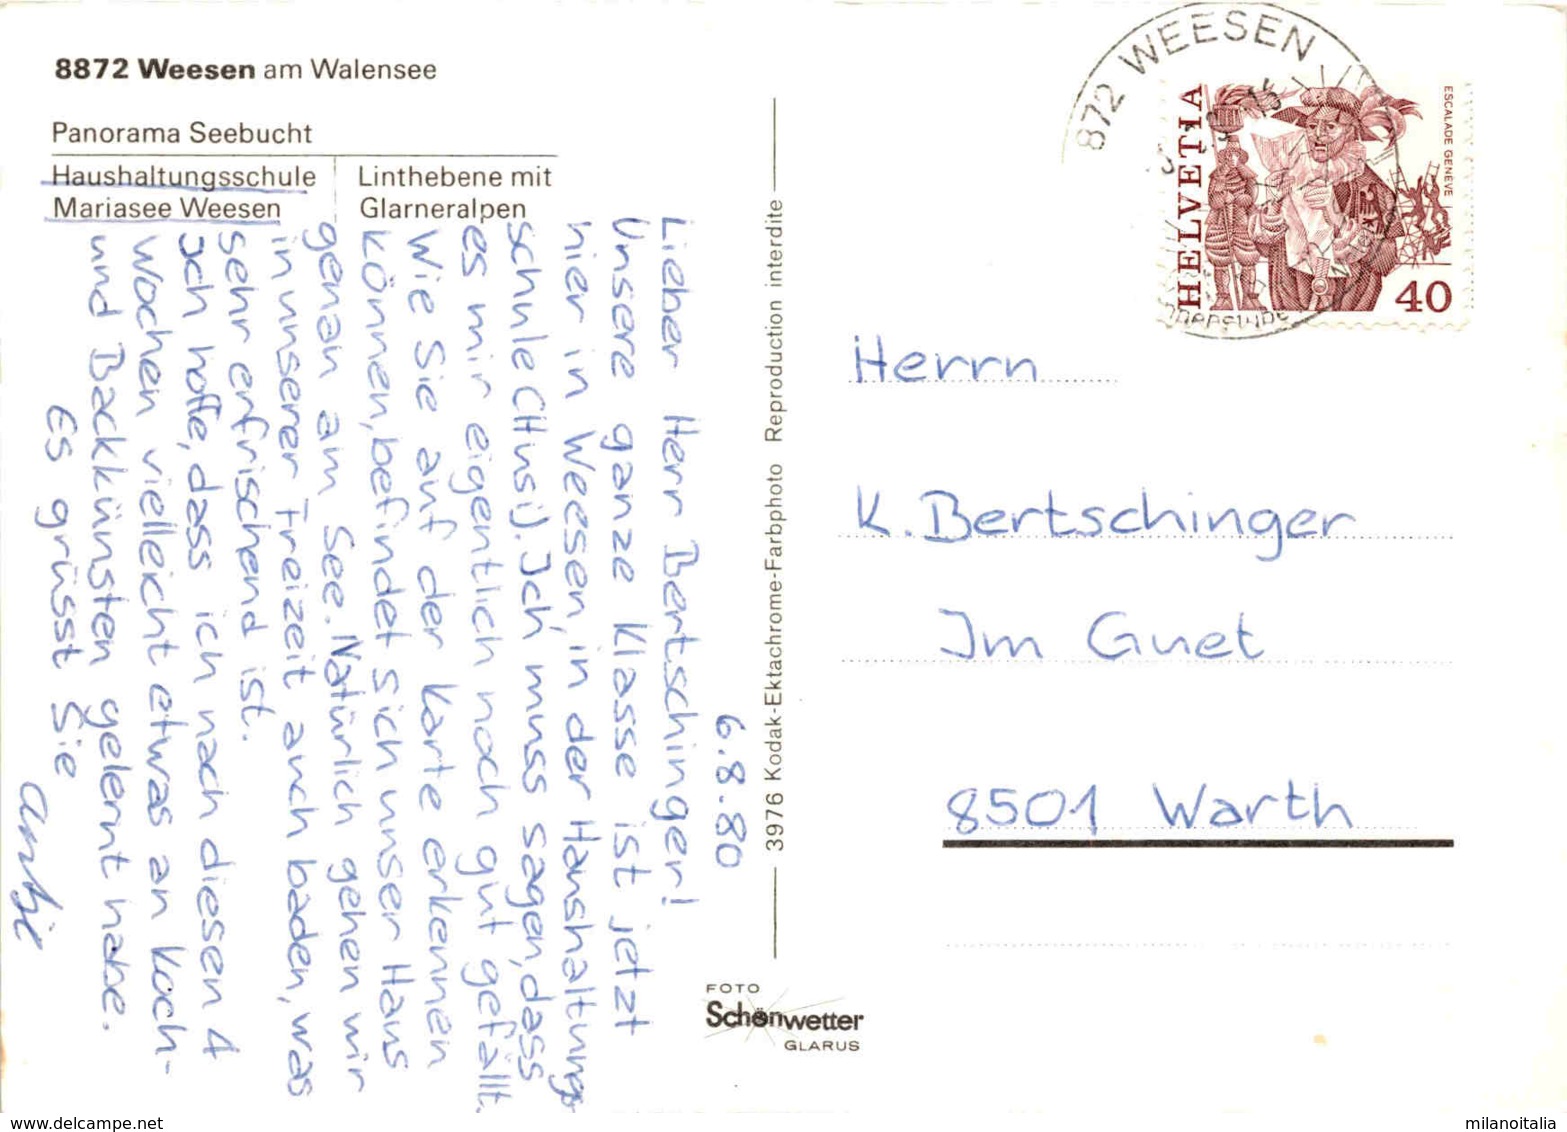 8872 Weesen am Walensee
Panorama Seebucht
Haushaltungsschule
Mariasee Weesen
Linthebene mit
Glarneralpen
6.8.80
Lieber Herr Bertschinger!
Unsere ganze Klasse ist jetzt
hier in Weesen, in der Haushaltungs
schule (Husi). Ich muss sagen, dass
es mir eigentlich noch gut gefällt.
Wie Sie auf der Karte erkennen
können, befindet sich unser Haus
genau am See. Natürlich gehen wir
in unserer Freizeit auch baden, was
sehr erfrischend ist.
Ich hoffe, dass ich nach diesen 4
Wochen vielleicht etwas an Koch-
und Backkünsten gelernt habe.
Es grüsst Sie
3976 Kodak-Ektachrome-Farbphoto Reproduction interdite
FOTO
Schönwetter
GLARUS
8872 WEESEN
HELVETIA
ESCALADE GENEVE
40
Herrn
K. Bertschinger
Im Guet
8501 Warth
milanoitalia